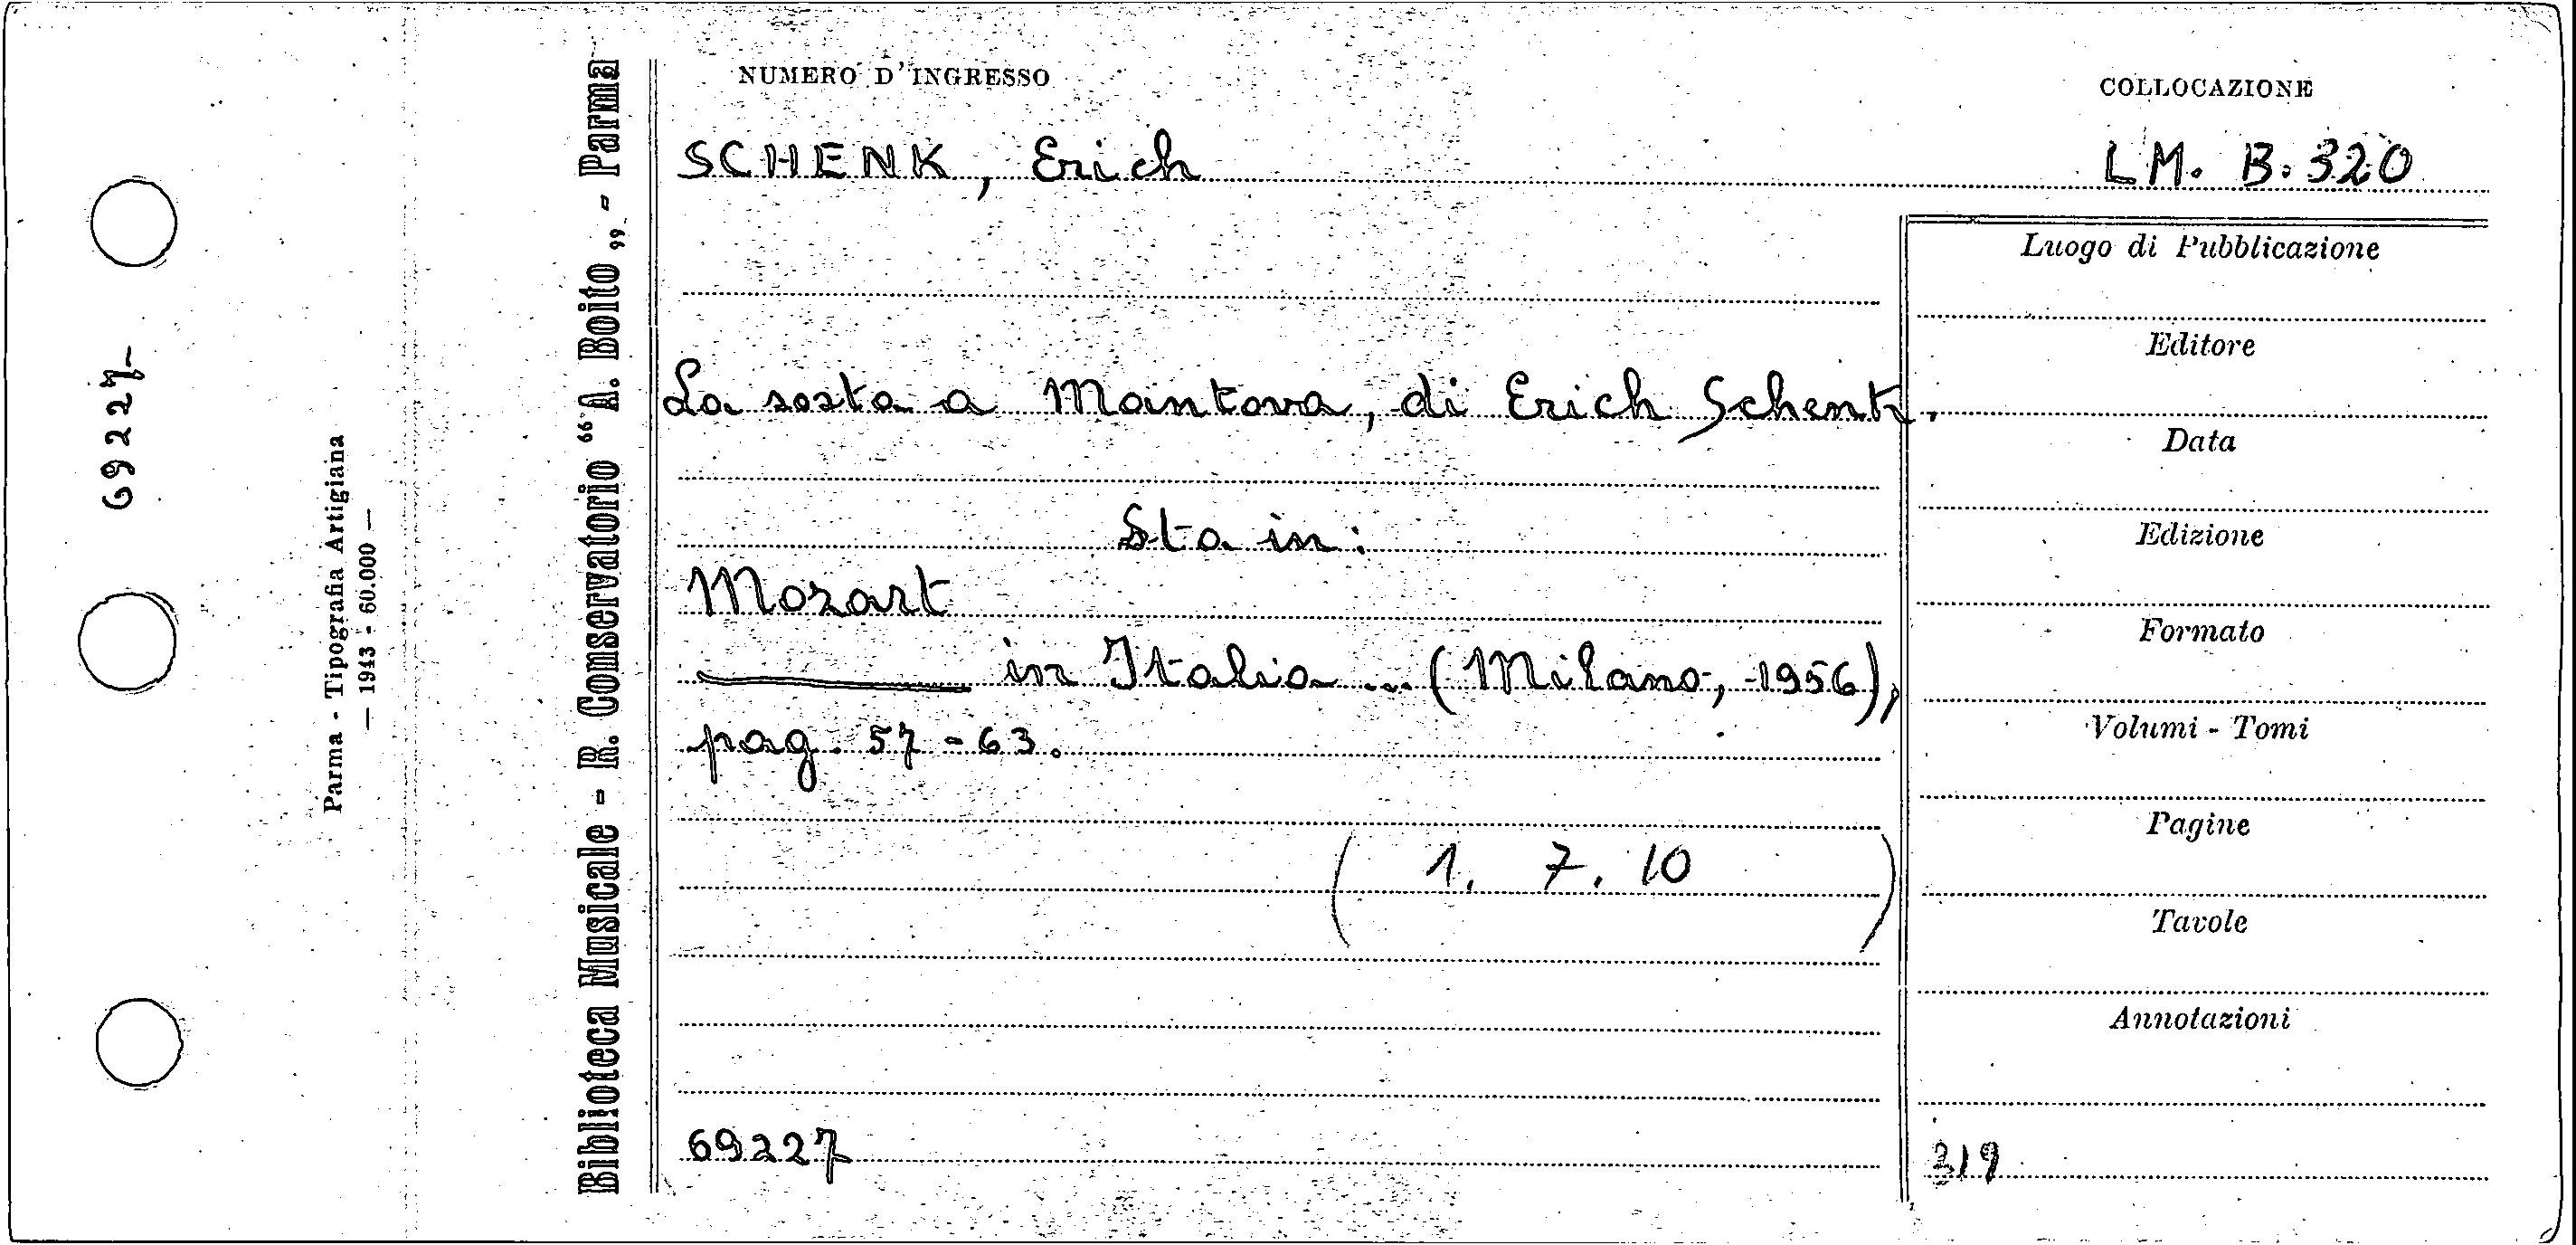 69227
Parma - Tipografia Artigiana
— 1943 - 60.000 —
Biblioteca Musicale - R. Conservatorio "A. Boito„ - Parma
NUMERO D'INGRESSO
COLLOCAZIONE
SCHENK, Erich
LM. B. 320
La sosta a Mantova, di Erich Schenk.
Sta in:
Mozart
in Italia ... (Milano, 1956),
pag. 57-63.
( 1. 7. 10 )
69227
Luogo di Pubblicazione
Editore
Data
Edizione
Formato
Volumi - Tomi
Pagine
Tavole
Annotazioni
319